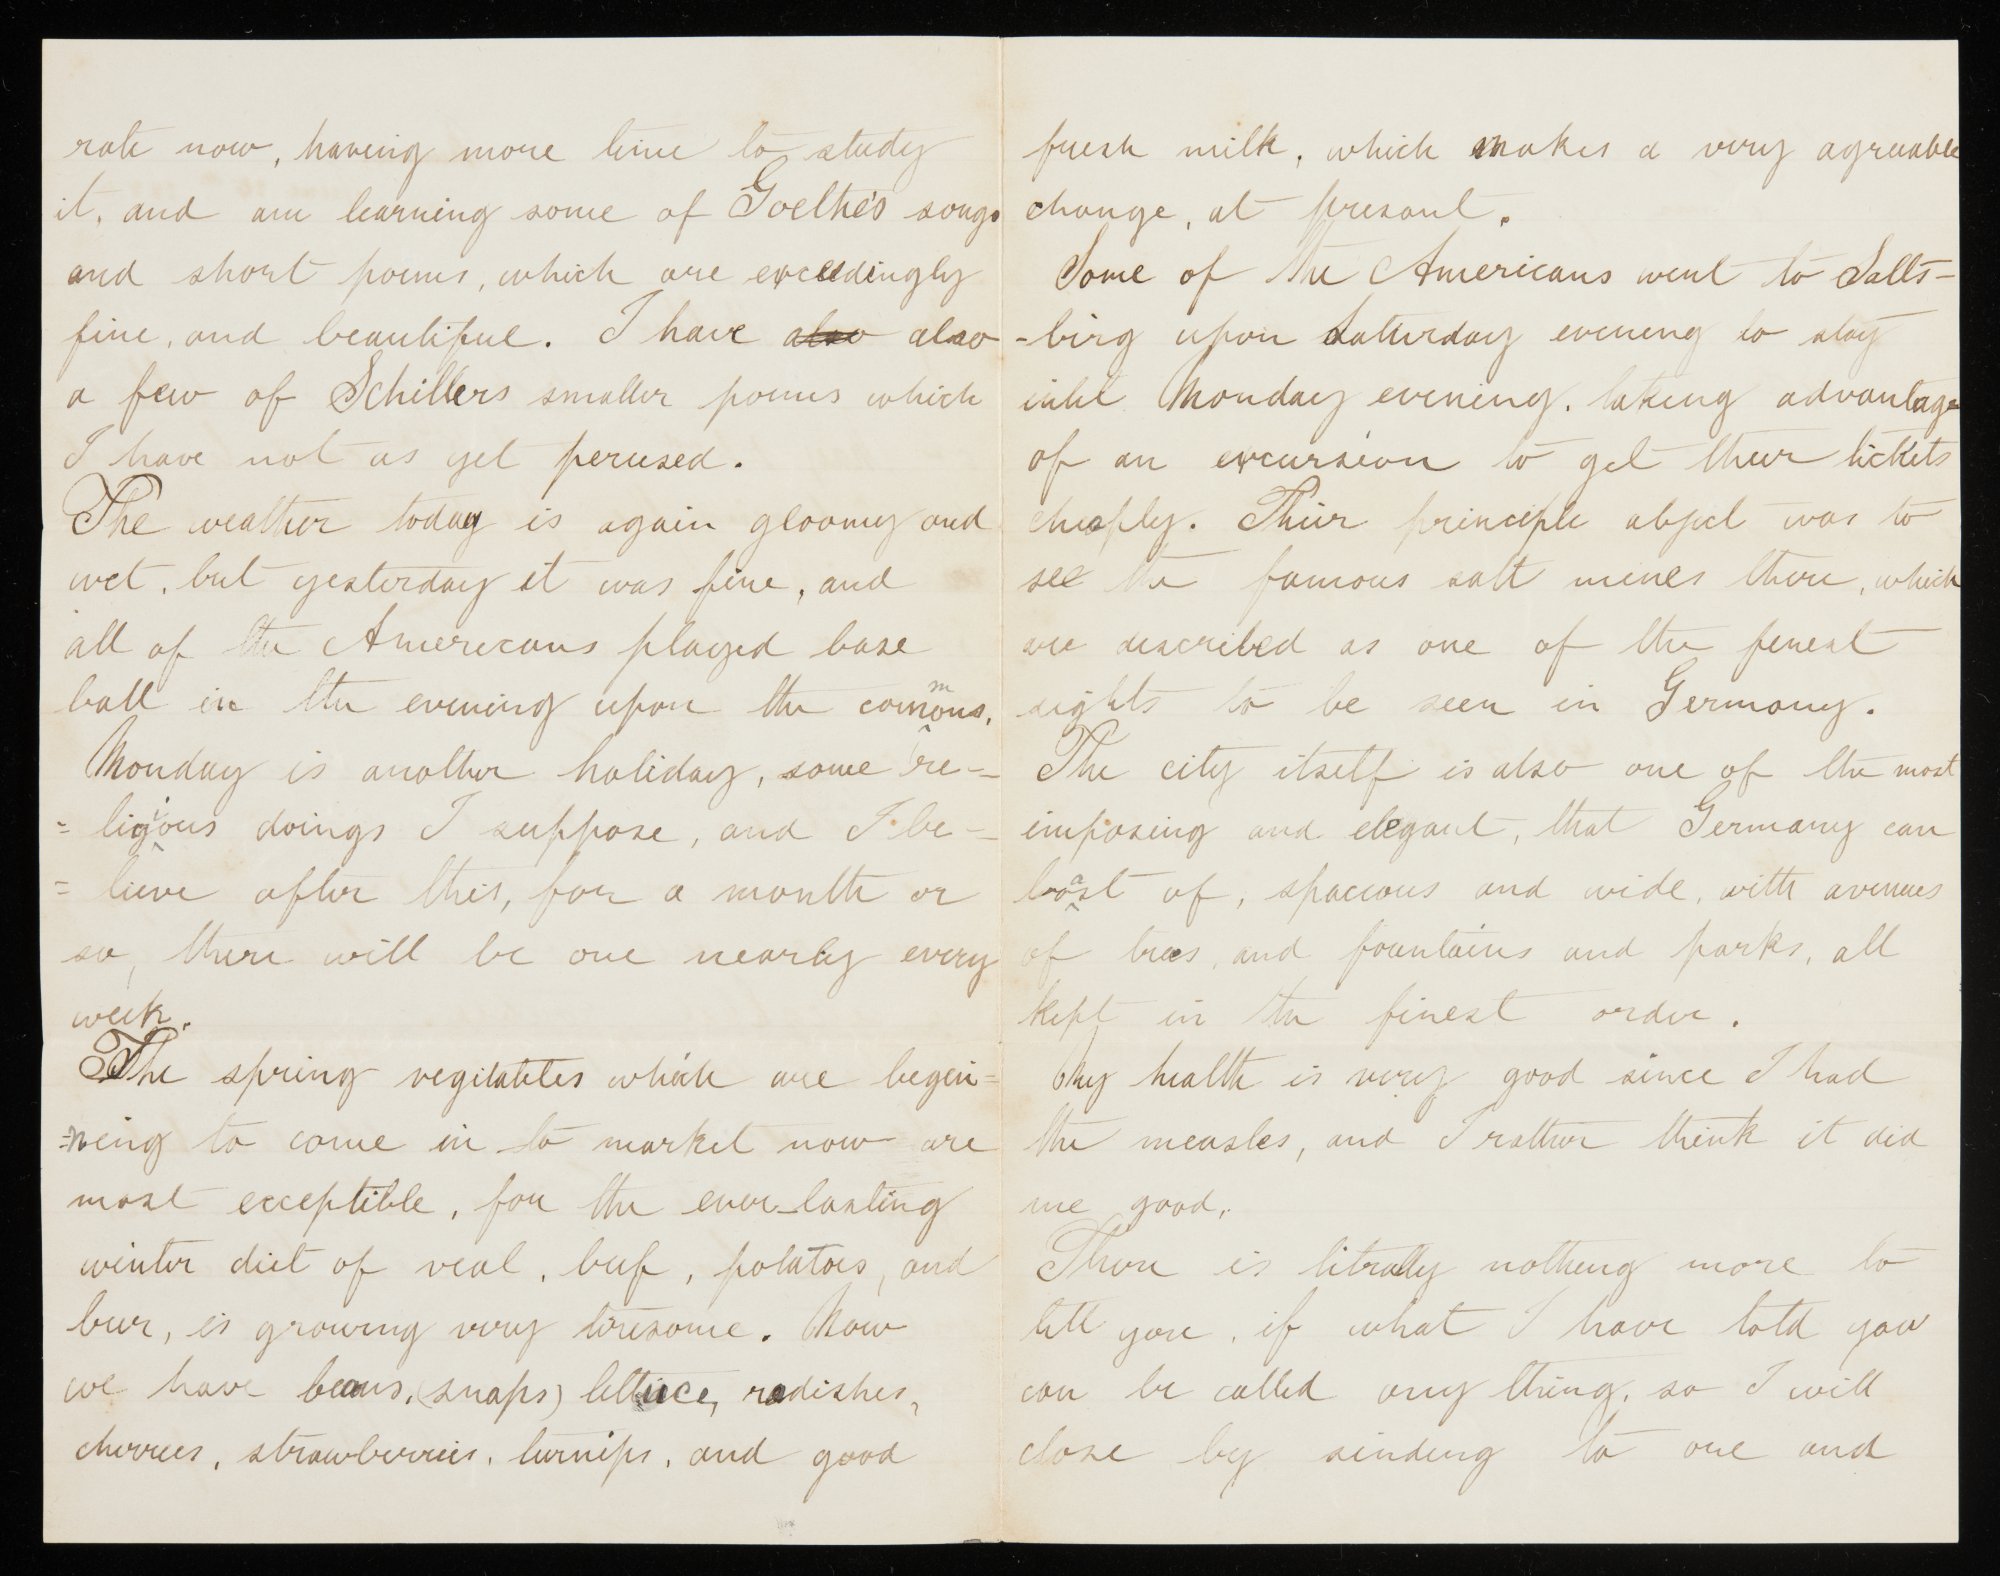 rate now, having more time to study
it, and am learning some of Goethe's songs
and short poems, which are exceedingly
fine, and beautiful. I have also also
a few of Schillers smaller poems which
I have not as yet perused.
The weather today is again gloomy and
wet, but yesterday it was fine, and
all of the Americans played base
ball in the evening upon the commons.
Monday is another holiday, some re-
=ligious doings I suppose, and I be-
=lieve after this, for a month or
so, there will be one nearly every
week.
The spring vegitables which are begin=
=ning to come in to market now are
most exceptible, for the ever-lasting
winter diet of veal, beef, potatoes, and
beer, is growing very tiresome. Now
we have beans, (snaps) lettuce, radishes,
cherries, strawberries, turnips, and good
fresh milk, which makes a very agreeable
change, at presant.
Some of the Americans went to Salts-
-birg upon Satturday evening to stay
until Monday evening, taking advantage
of an excursion to get their tickets
cheaply. Their principle object was to
see the famous salt mines there, which
are described as one of the finest
sights to be seen in Germany.
The city itself is also one of the most
imposing and elegant, that Germany can
boast of, spacious and wide, with avenues
of trees, and fountains and parks, all
kept in the finest order.
My health is very good since I had
the measles, and I rather think it did
me good.
There is litrally nothing more to
tell you, if what I have told you
can be called any thing, so I will
close by sending to one and